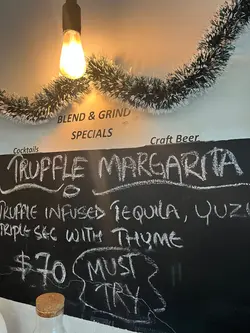 BLEND & GRIND
SPECIALS
Cocktails
Craft Beer
TRUFFLE MARGARITA
TRUFFLE INFUSED TEQUILA, YUZU
TRIPLE SEC WITH THYME
$70
MUST
TRY